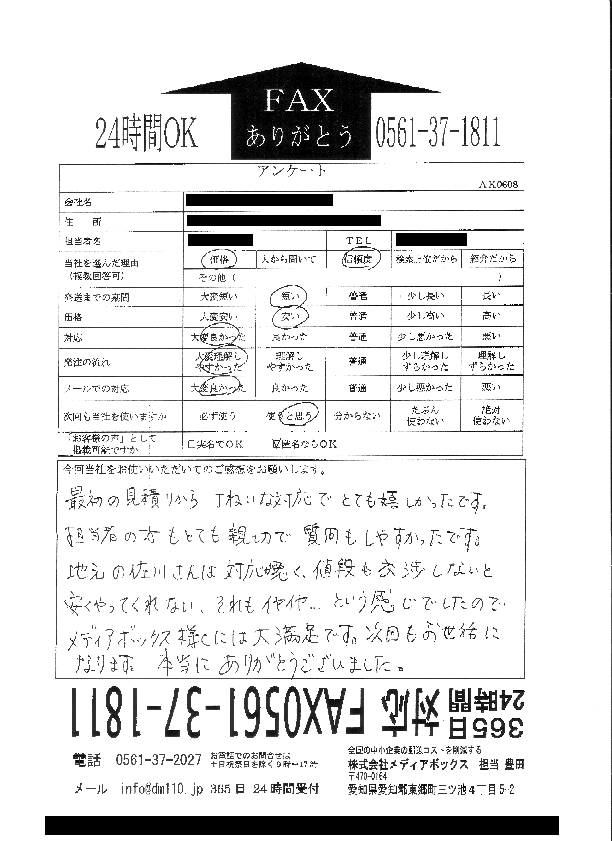 FAX
ありがとう
24時間OK
0561-37-1811
アンケート
AX0608
会社名
住 所
担当者名 TEL
当社を選んだ理由 (複数回答可) 価格 人から聞いて 信頼度 検索上位だから 紹介だから
その他 ( )
発送までの期間 大変短い 短い 普通 少し長い 長い
価格 大変安い 安い 普通 少し高い 高い
対応 大変良かった 良かった 普通 少し悪かった 悪い
発注の流れ 大変理解しやすかった 理解しやすかった 普通 少し理解しずらかった 理解しずらかった
メールでの対応 大変良かった 良かった 普通 少し悪かった 悪い
次回も当社を使いますか 必ず使う 使うと思う 分からない たぶん使わない 絶対使わない
「お客様の声」として掲載可能ですか □実名でOK ☑匿名ならOK
今回当社をお使いいただいてのご感想をお願いします。
最初の見積りから丁ねいな対応でとても嬉しかったです。
担当者の方もとても親切で質問もしやすかったです。
地元の佐川さんは対応悪く、値段も交渉しないと
安くやってくれない、それもイヤイヤ…という感じでしたので
メディアボックス様には大満足です。次回もお世話に
なります。本当にありがとうございました。
365日
24時間
対応 FAX0561-37-1811
電話 0561-37-2027 お電話でのお問合せは
土日祝祭日を除く9時〜17時
メール info@dm110.jp 365日 24時間受付
全国の中小企業の郵送コストを削減する
株式会社メディアボックス 担当 豊田
〒470-0164
愛知県愛知郡東郷町三ツ池4丁目5-2